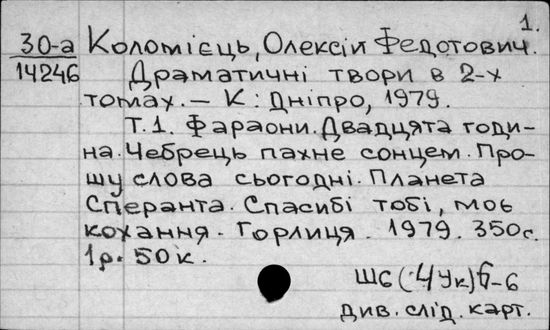 1.
30-а Коломієць, Олексій Федотович.
14246 Драматичні твори в 2-х
томах. — К: Дніпро, 1979.
Т.1. Фараони. Двадцята годи-
на. Чебрець пахне сонцем. Про-
шу слова сьогодні. Планета
Сперанта. Спасибі тобі, моє
кохання. Горлиця. 1979. 350с.
1р. 50к.
Ш6(4Ук)6-6
див. слід. карт.